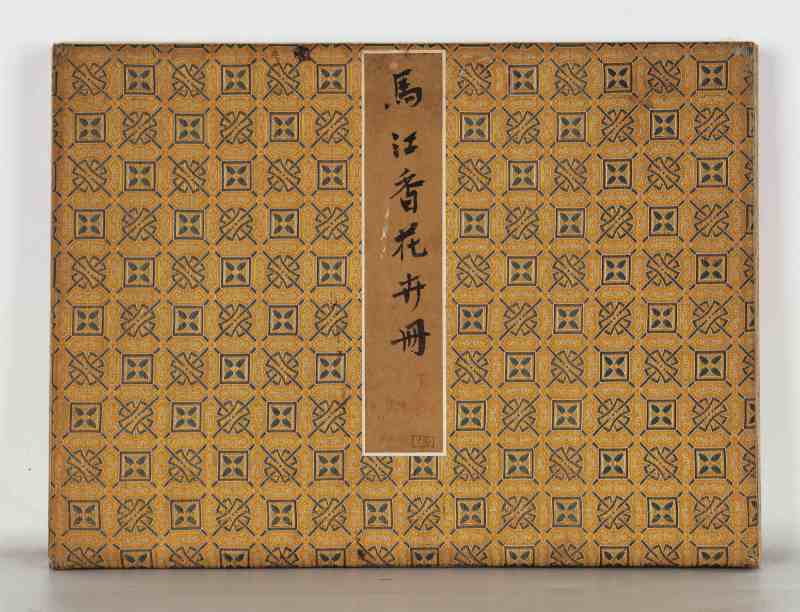 馬江香花卉冊